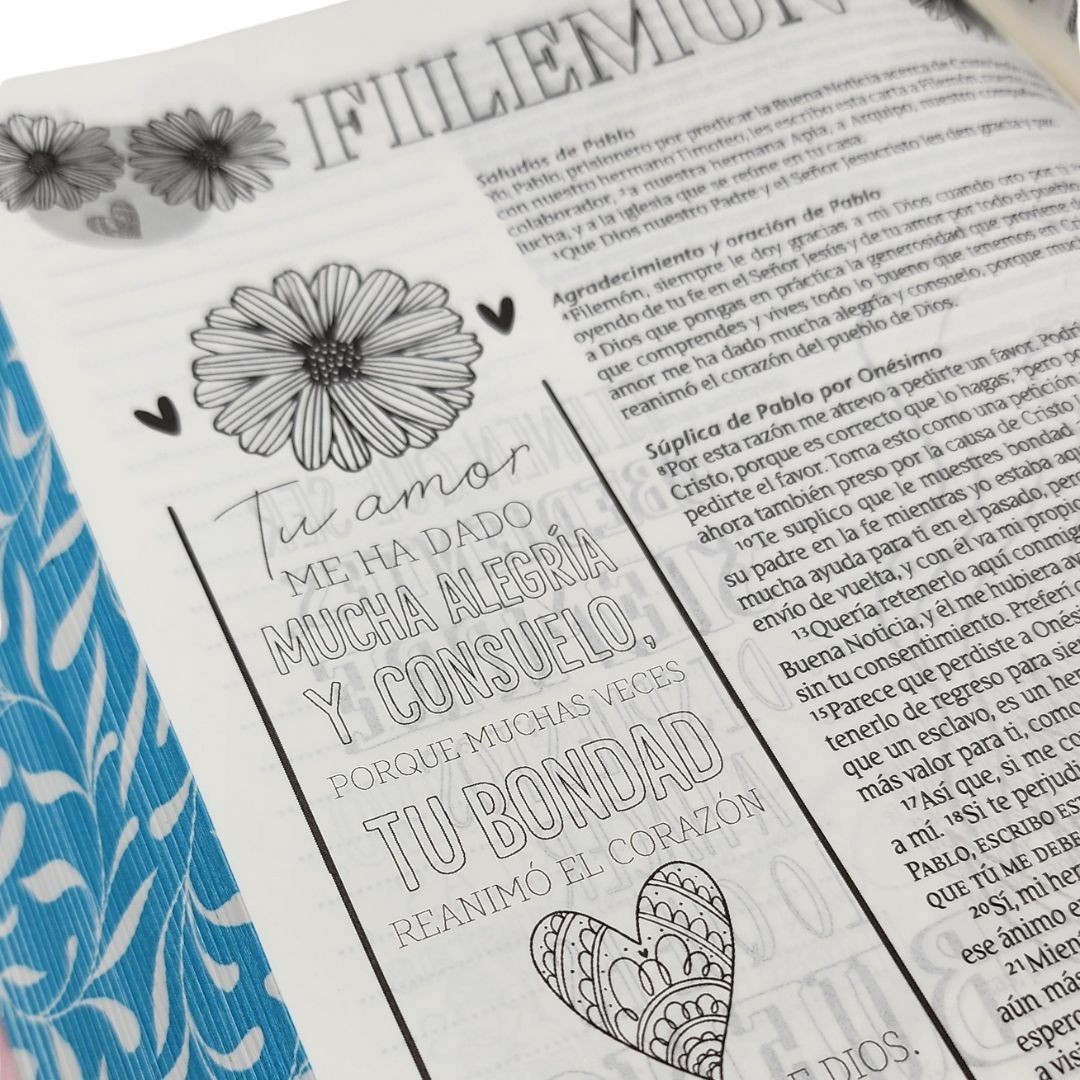 FILEMÓN
Tu amor
ME HA DADO
MUCHA ALEGRÍA
Y CONSUELO,
PORQUE MUCHAS VECES
TU BONDAD
REANIMÓ EL CORAZÓN
E DIOS.
Saludos de Pablo
Yo, Pablo, prisionero por predicar la Buena Noticia acerca de Cristo
con nuestro hermano Timoteo, les escribo esta carta a Filemón, nuestro
colaborador, ²a nuestra hermana Apia, a Arquipo, nuestro
lucha, y a la iglesia que se reúne en tu casa.
³Que Dios nuestro Padre y el Señor Jesucristo les den gracia y paz.
Agradecimiento y oración de Pablo
⁴Filemón, siempre le doy gracias a mi Dios cuando oro por ti
oyendo de tu fe en el Señor Jesús y de tu amor por todo el pueblo
a Dios que pongas en práctica la generosidad que proviene de
que comprendes y vives todo lo bueno que tenemos en
amor me ha dado mucha alegría y consuelo, porque
reanimó el corazón del pueblo de Dios.
Súplica de Pablo por Onésimo
⁸Por esta razón me atrevo a pedirte un favor. Podrí
Cristo, porque es correcto que lo hagas; ⁹pero
pedirte el favor. Toma esto como una petición
ahora también preso por la causa de Cristo
¹⁰Te suplico que le muestres bondad
su padre en la fe mientras yo estaba aqu
mucha ayuda para ti en el pasado, per
envío de vuelta, y con él va mi propio
¹³Quería retenerlo aquí conmig
Buena Noticia, y él me hubiera ay
sin tu consentimiento. Preferí
¹⁵Parece que perdiste a Onés
tenerlo de regreso para sie
que un esclavo, es un her
más valor para ti, como
¹⁷Así que, si me co
a mí. ¹⁸Si te perjudi
PABLO, ESCRIBO ES
QUE TÚ ME DEBE
²⁰Sí, mi her
ese ánimo e
²¹Mien
aún más
espero
a vis